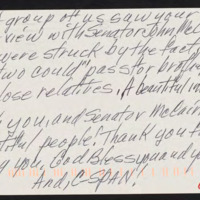 group of us saw your
view with Senator John Mc
were struck by the fact
two could "pass for brothers
lose relatives. A beautiful in
you, and Senator McCain
tiful people! Thank you f
g you, God Bless you and y
And, C-SPAN!